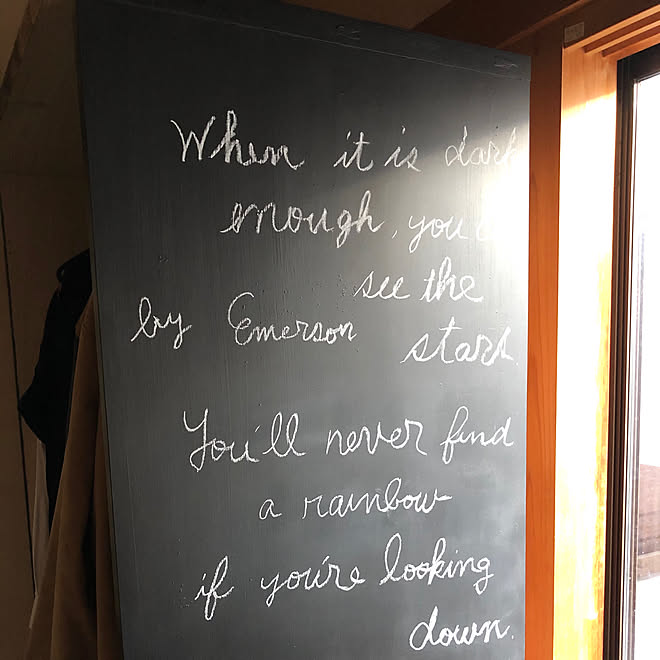 When it is dark
enough, you
see the
stars.
by Emerson
You'll never find
a rainbow
if you're looking
down.